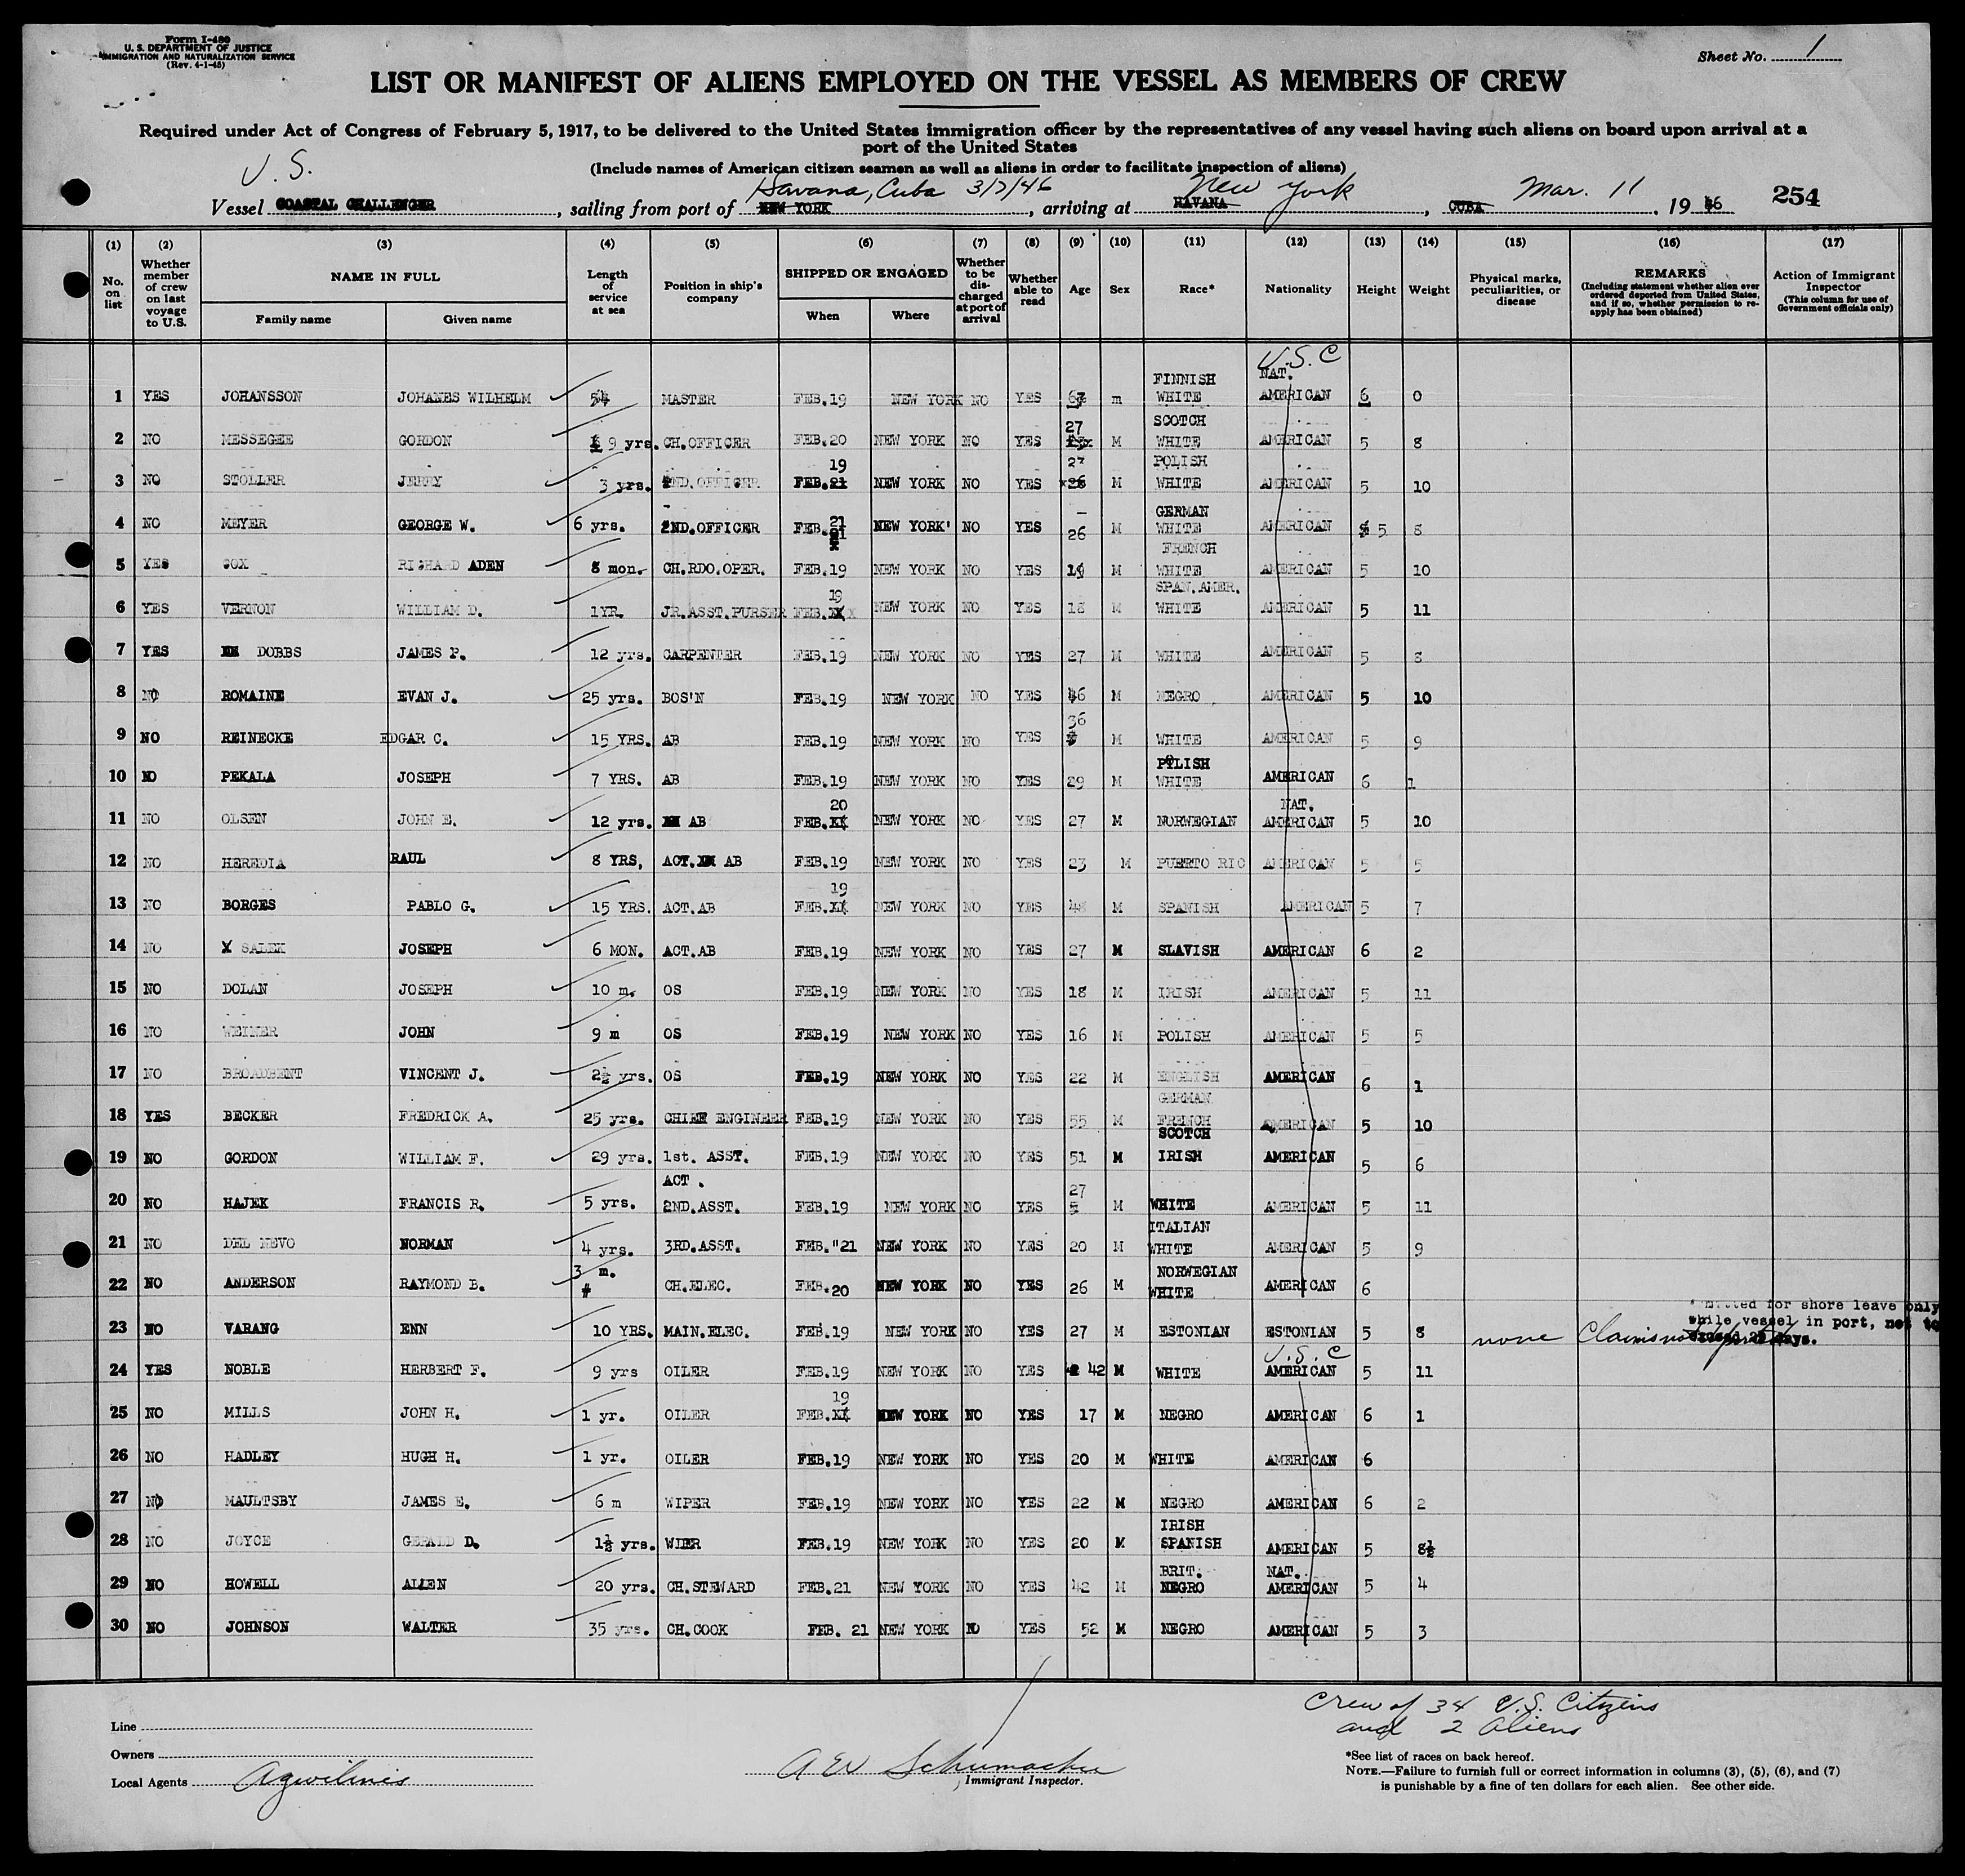 Form I-480
U. S. DEPARTMENT OF JUSTICE
IMMIGRATION AND NATURALIZATION SERVICE
(Rev. 4-1-45)
Sheet No. 1
LIST OR MANIFEST OF ALIENS EMPLOYED ON THE VESSEL AS MEMBERS OF CREW
Required under Act of Congress of February 5, 1917, to be delivered to the United States immigration officer by the representatives of any vessel having such aliens on board upon arrival at a
port of the United States
(Include names of American citizen seamen as well as aliens in order to facilitate inspection of aliens)
U. S.
Havana, Cuba 3/7/46 New York Mar. 11
Vessel COASTAL CHALLENGER, sailing from port of NEW YORK, arriving at HAVANA, CUBA, 19 46 254
(1) (2) (3) (4) (5) (6) (7) (8) (9) (10) (11) (12) (13) (14) (15) (16) (17)
No. on list
Whether member of crew on last voyage to U.S.
NAME IN FULL
Family name
Given name
Length of service at sea
Position in ship's company
SHIPPED OR ENGAGED
When
Where
Whether to be discharged at port of arrival
Whether able to read
Age
Sex
Race*
Nationality
Height
Weight
Physical marks, peculiarities, or disease
REMARKS
(Including statement whether alien ever ordered deported from United States, and if so, whether permission to reapply has been obtained)
Action of Immigrant Inspector
(This column for use of Government officials only)
U.S.C
FINNISH NAT.
1 YES JOHANSSON JOHANES WILHELM MASTER FEB.19 NEW YORK NO YES m WHITE AMERICAN 6 0
27 SCOTCH
2 NO MESSEGEE GORDON 9 yrs. CH.OFFICER FEB.20 NEW YORK NO YES M WHITE AMERICAN 5 8
19 27 POLISH
3 NO STOLLER JERRY 3 yrs. ND.OFFICER FEB.21 NEW YORK NO YES 26 M WHITE AMERICAN 5 10
21 GERMAN
4 NO MEYER GEORGE W. 6 yrs. 2ND.OFFICER FEB. NEW YORK NO YES 26 M WHITE AMERICAN 5 8
FRENCH
5 YES COX RICHARD ADEN 8 mon. CH.RDO.OPER. FEB.19 NEW YORK NO YES 19 M WHITE AMERICAN 5 10
19 SPAN.AMER.
6 YES VERNON WILLIAM D. 1YR. JR.ASST.PURSER FEB. NEW YORK NO YES 18 M WHITE AMERICAN 5 11
7 YES DOBBS JAMES P. 12 yrs. CARPENTER FEB.19 NEW YORK NO YES 27 M WHITE AMERICAN 5 8
8 NO ROMAINE EVAN J. 25 yrs. BOS'N FEB.19 NEW YORK NO YES 46 M NEGRO AMERICAN 5 10
36
9 NO REINECKE EDGAR C. 15 YRS. AB FEB.19 NEW YORK NO YES M WHITE AMERICAN 5 9
POLISH
10 NO PEKALA JOSEPH 7 YRS. AB FEB.19 NEW YORK NO YES 29 M WHITE AMERICAN 6 1
20 NAT.
11 NO OLSEN JOHN E. 12 yrs. AB FEB. NEW YORK NO YES 27 M NORWEGIAN AMERICAN 5 10
12 NO HEREDIA RAUL 8 YRS, ACT. AB FEB.19 NEW YORK NO YES 23 M PUERTO RIC AMERICAN 5 5
19
13 NO BORGES PABLO G. 15 YRS. ACT.AB FEB. NEW YORK NO YES 48 M SPANISH AMERICAN 5 7
14 NO X SALEK JOSEPH 6 MON. ACT.AB FEB.19 NEW YORK NO YES 27 M SLAVISH AMERICAN 6 2
15 NO DOLAN JOSEPH 10 m. OS FEB.19 NEW YORK NO YES 18 M IRISH AMERICAN 5 11
16 NO WEINER JOHN 9 m OS FEB.19 NEW YORK NO YES 16 M POLISH AMERICAN 5 5
17 NO BROADBENT VINCENT J. 2½ yrs. OS FEB.19 NEW YORK NO YES 22 M ENGLISH AMERICAN 6 1
GERMAN
18 YES BECKER FREDRICK A. 25 yrs. CHIEF ENGINEER FEB.19 NEW YORK NO YES 55 M FRENCH AMERICAN 5 10
SCOTCH
19 NO GORDON WILLIAM F. 29 yrs. 1st. ASST. FEB.19 NEW YORK NO YES 51 M IRISH AMERICAN 5 6
ACT. 27
20 NO HAJEK FRANCIS R. 5 yrs. 2ND.ASST. FEB.19 NEW YORK NO YES M WHITE AMERICAN 5 11
ITALIAN
21 NO DEL NEVO NORMAN 4 yrs. 3RD.ASST. FEB."21 NEW YORK NO YES 20 M WHITE AMERICAN 5 9
3 m. NORWEGIAN
22 NO ANDERSON RAYMOND B. CH.ELEC. FEB.20 NEW YORK NO YES 26 M WHITE AMERICAN 6
mitted for shore leave only
while vessel in port, not to
exceed 29 days.
23 NO VARANG ENN 10 YRS. MAIN.ELEC. FEB.19 NEW YORK NO YES 27 M ESTONIAN ESTONIAN 5 8 none Claims
U.S.C
24 YES NOBLE HERBERT F. 9 yrs OILER FEB.19 NEW YORK NO YES 42 M WHITE AMERICAN 5 11
19
25 NO MILLS JOHN H. 1 yr. OILER FEB. NEW YORK NO YES 17 M NEGRO AMERICAN 6 1
26 NO HADLEY HUGH H. 1 yr. OILER FEB.19 NEW YORK NO YES 20 M WHITE AMERICAN 6
27 NO MAULTSBY JAMES E. 6 m WIPER FEB.19 NEW YORK NO YES 22 M NEGRO AMERICAN 6 2
IRISH
28 NO JOYCE GERALD D. 1½ yrs. WIER FEB.19 NEW YORK NO YES 20 M SPANISH AMERICAN 5 8½
BRIT. NAT.
29 NO HOWELL ALLEN 20 yrs. CH.STEWARD FEB.21 NEW YORK NO YES 42 M NEGRO AMERICAN 5 4
30 NO JOHNSON WALTER 35 yrs. CH.COOK FEB. 21 NEW YORK NO YES 52 M NEGRO AMERICAN 5 3
Crew of 34 U.S. Citizens
and 2 Aliens
Line
Owners
Local Agents Agwilines
A W Schumacher
Immigrant Inspector.
*See list of races on back hereof.
NOTE.—Failure to furnish full or correct information in columns (3), (5), (6), and (7)
is punishable by a fine of ten dollars for each alien. See other side.